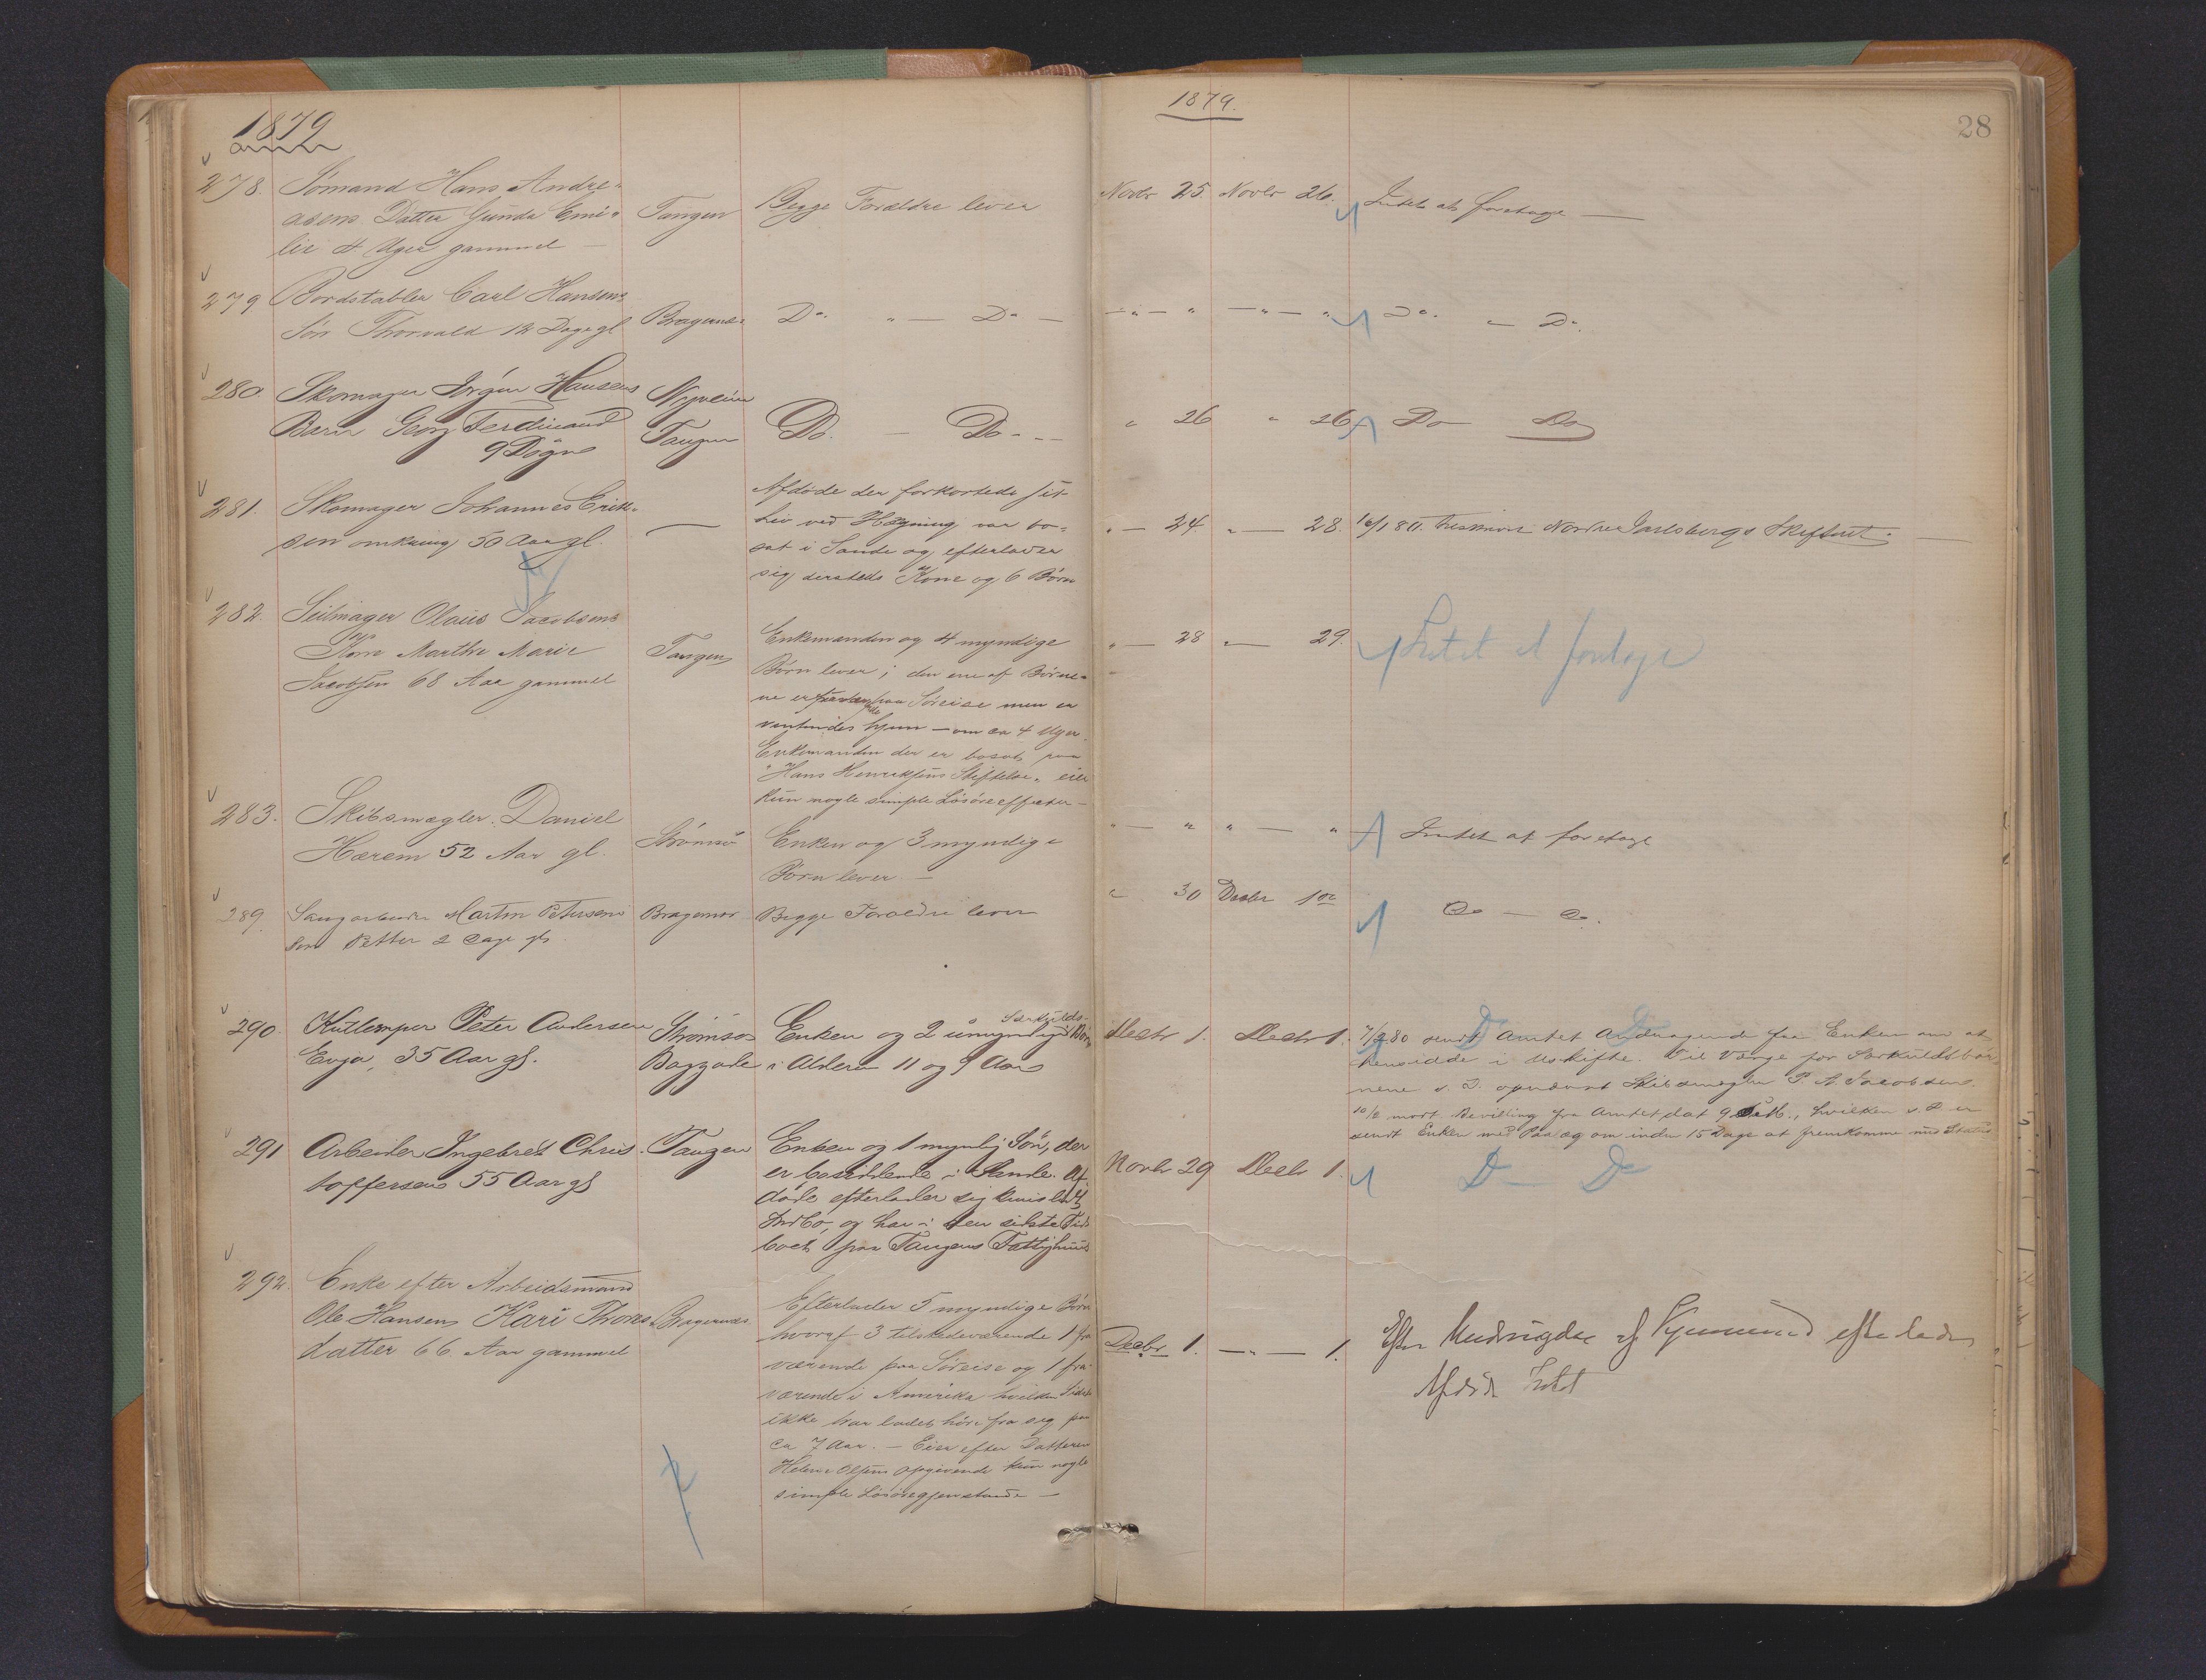 1879
278. Sömand Hans Andre-
asens Datter Gunda Emi-
lie 4 Uger gammel —
Tangen
Begge Forældre lever
279 Bordstabler Carl Hansens
Sön Thorvald 12 Dage gl
Bragernæs
Do. " — Do —
280. Skomager Jörgen Hansens
Barn Georg Ferdinand
9 Dögn
Tangen
Do. — Do. —
281. Skomager Johannes Erik-
sen omkring 50 Aar gl.
—
Afdöde der forkortede sit
Liv ved Hægning var bo-
sat i Sande og efterlader
sig dersteds Kone og 6 Börn
282. Seilmager Olaus Jacobsens
Kone Marthe Marie
Jacobsen 68 Aar gammel
Tangen
Enkemanden og 4 myndige
Börn lever; den ene af Börne-
ne er paa Söreise men er
ventendes hjem — om ca 4 Uger.
Enkemanden der er bosat paa
"Hans Henriksens Stiftelse" eier
kun nogle simple Lösöreeffecter —
283. Skibsmægler Daniel
Hærem 52 Aar gl.
Strömsö
Enken og 3 myndige
Börn lever —
289. Saugarbeider Martin Petersens
Sön Petter 2 Dage gl
Bragernæs
Begge Forældre lever
290. Kullemper Peter Andersen
Enga, 35 Aar gl.
Strömsös
Baggade
Særkulds-
Enken og 2 umyndige Börn
i Alderen 11 og 9 Aar
291 Arbeider Ingebret Chris-
toffersen 55 Aar gl
Tangen
Enken og 1 myndig Sön, der
er bosiddende i Sande. Af-
döde efterlader sig kun lidt
Indbo, og har i den sidste Tid
boet paa Tangens Fattighuus
292. Enke efter Arbeidsmand
Ole Hansen, Kari Thores-
datter 66 Aar gammel
Bragernæs
Efterlader 5 myndige Börn
hvoraf 3 tilstedeværende 1 fra-
værende paa Söreise og 1 fra-
værende i Amerika hvilken Sidste
ikke har ladet höre fra sig paa
ca 7 Aar. — Eier efter Datteren
Helene Olsens Opgivende kun nogle
simple Lösöregjenstande —
1879.
28
Novbr 25. Novbr 26. Intet at foretage —
— " — " — " — " Do. — Do.
" 26 " 26 Do Do
" — 24. " — 28. 16/1 80. Nordre Jarlsbergs Skifteret. —
" — 28 " — 29. Intet at foretage
" — " " — " Intet at foretage
" 30 Decbr 1ste Do — Do.
Decbr 1. Decbr 1. 7/2 80 sendt Amtet Andragende fra Enken om at
hensidde i Uskifte. Til Værge for Særkuldsbör-
nene s. D. opnævnt Skibsmægler P. A. Jacobsen.
10/2 modt. Bevilling fra Amtet dat 9 Feb., hvilken s. D. er
sendt Enken med Paalæg om inden 15 Dage at fremkomme med Status
Do Do
Novbr 29 Decbr 1. Do — Do
Decbr 1. — " — 1. Efter af efterlader
Afdöde Intet